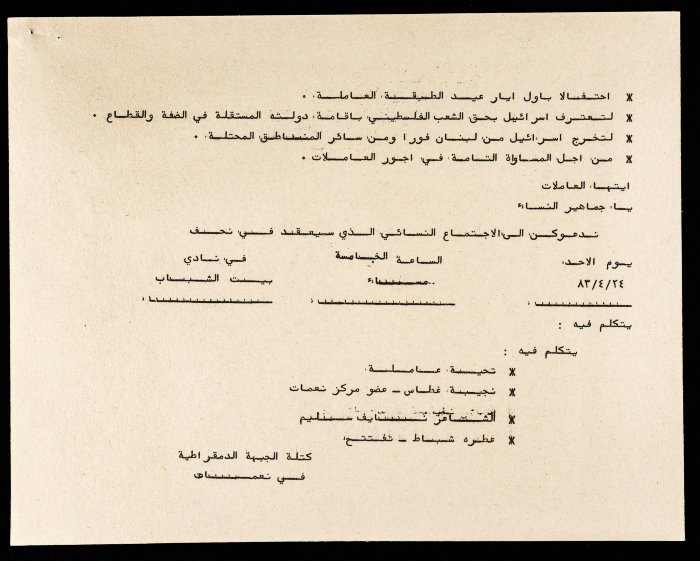 * احتفالا باول ايار عيد الطبقة العاملة .
* لتعترف اسرائيل بحق الشعب الفلسطيني باقامة دولته المستقلة في الضفة والقطاع .
* لتخرج اسرائيل من لبنان فورا ومن سائر المناطق المحتلة .
* من اجل المساواة التامة في اجور العاملات .
ايتها العاملات
يا جماهير النساء
ندعوكن الى الاجتماع النسائي الذي سيعقد في نحف
يوم الاحد الساعة الخامسة في نادي
٨٣/٤/٢٤ مساء بيت الشباب
يتكلم فيه :
يتكلم فيه :
* تحية عاملة
* نجيبة غطاس - عضو مركز نعمات
* الشاعر نايف سليم
* عطره شباط - تفتتح
كتلة الجبهة الدمقراطية
في نعمات